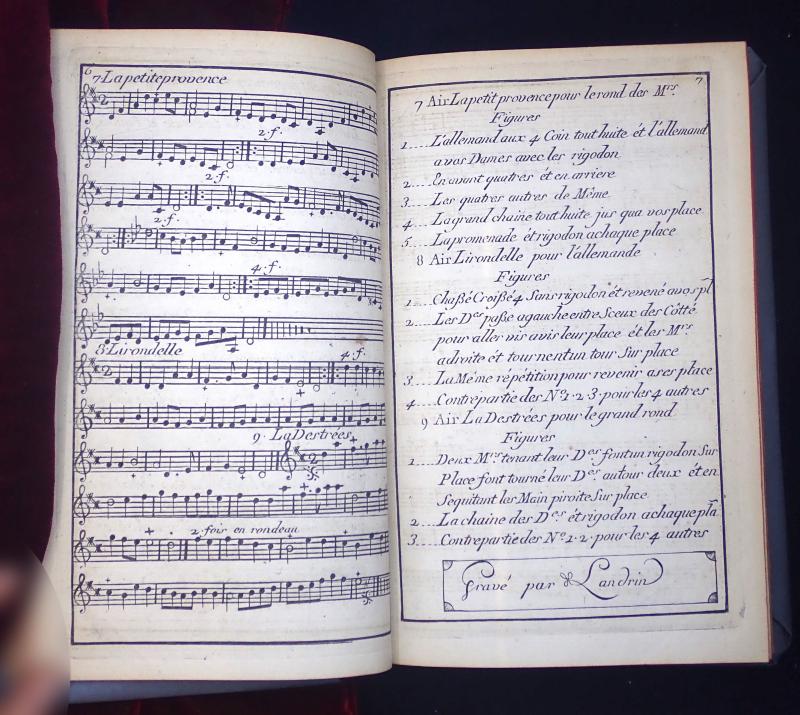 6
7 La petite provence
2. f.
2. f.
2. f.
4. f.
8 Lirondelle
4. f.
9. La Destrées
2 fois en rondeau
7
7 Air La petit provence pour le rond des Mrs.
Figures
1.... L'allemand aux 4 Coin tout huite ét l'allemand
a vos Dames avec les rigodon
2.... En avant quatres ét en arriere
3.... Les quatres autres de Même
4.... La grand chaine tout huite jus qua vos place
5.... La promenade ét rigodon achaque place
8 Air Lirondelle pour l'allemande
Figures
1.... Chaßé Croißé 4 Sans rigodon ét revené avos pl
2.... Les Des paße agauche entre Sceux des Côtté
pour aller vis avis leur place ét les Mrs
adroite ét tournent un tour Sur place
3.... La Même répétition pour revenir ases place
4.... Contrepartie des No 1·2·3·pour les 4 autres
9 Air La Destrées pour le grand rond
Figures
1.... Deux Mrs tenant leur Des font un rigodon Sur
Place font tourné leur Des autour deux ét en
Sequitant les Main piroite Sur place
2.... La chaine des Des ét rigodon achaque pla
3.... Contrepartie des No 1·2·pour les 4 autres
Gravé par Landrin